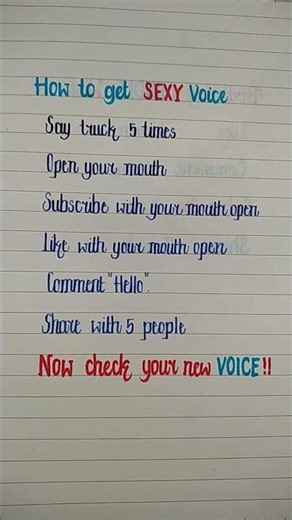 How to get SEXY Voice
Say truck 5 times
Open your mouth
Subscribe with your mouth open
Like with your mouth open
Comment "Hello".
Share with 5 people
Now check your new VOICE!!